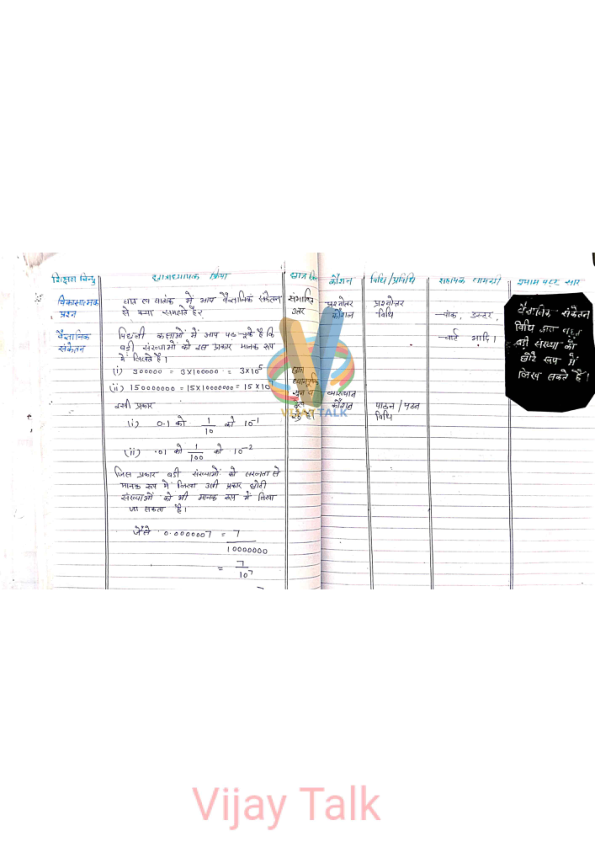 शिक्षण बिन्दु
छात्राध्यापक क्रिया
छात्र क्रि
कौशल
विधि/प्रविधि
सहायक सामग्री
श्यामपट्ट सार
विकासात्मक
प्रश्न
में आप वैज्ञानिक संकेतन
से क्या समझते हैं?
उत्तर
प्रश्नोत्तर
कौशल
प्रश्नोत्तर
विधि
-चॉक, डस्टर,
-चार्ट आदि।
वैज्ञानिक संकेतन
विधि द्वारा
बड़ी संख्या को
छोटे रूप में
लिख सकते हैं।
वैज्ञानिक
संकेतन
पिछली कक्षाओं में आप पढ़ चुके हैं कि
बड़ी संख्याओं को इस प्रकार मानक रूप
में लिखते हैं।
(i) 300000 = 3×100000 = 3×10⁵
(ii) 150000000 = 15×10000000 = 15×10⁷
छात्र
व्याख्यान
कौशल
पाठन/
विधि
इसी प्रकार
(i) 0.1 को 1/10 को 10⁻¹
(ii) .01 को 1/100 को 10⁻²
जिस प्रकार बड़ी संख्याओं को सरलता से
मानक रूप में लिखा उसी प्रकार छोटी
संख्याओं को भी मानक रूप में लिखा
जा सकता है।
जैसे 0.0000007 = 7
10000000
= 7
10⁷
VIJAY TALK
Vijay Talk